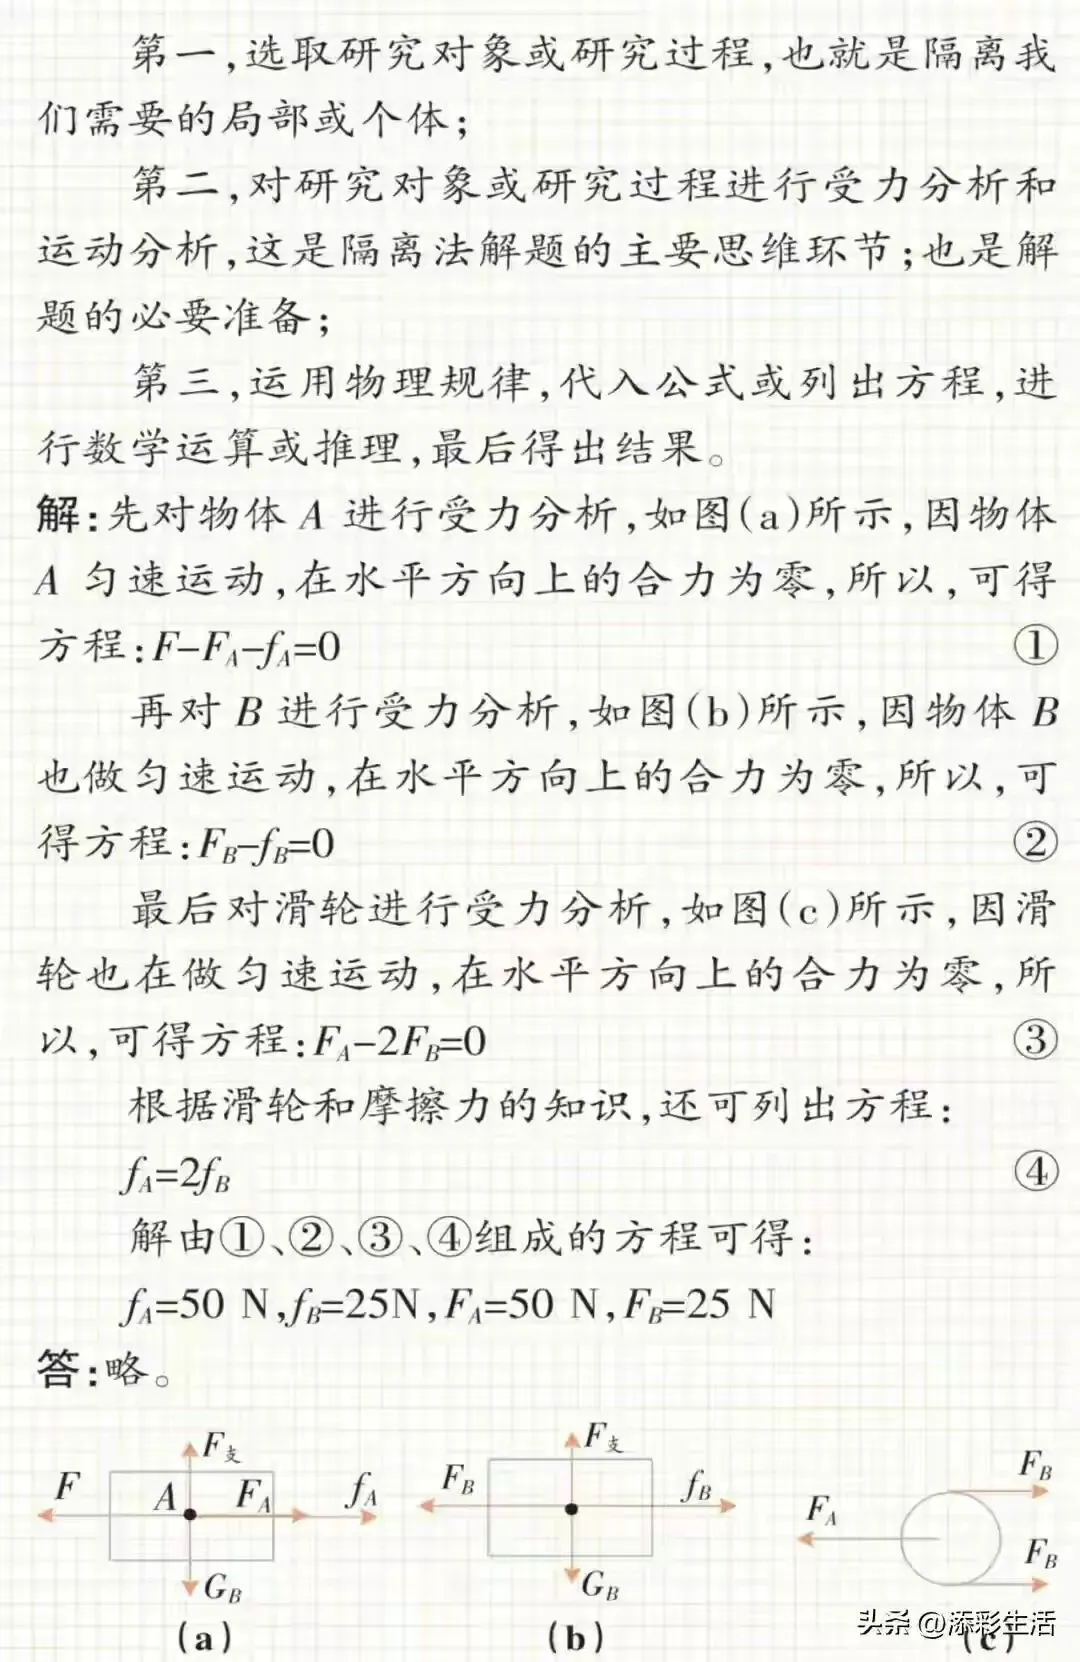 第一,选取研究对象或研究过程,也就是隔离我
们需要的局部或个体;
第二,对研究对象或研究过程进行受力分析和
运动分析,这是隔离法解题的主要思维环节;也是解
题的必要准备;
第三,运用物理规律,代入公式或列出方程,进
行数学运算或推理,最后得出结果。
解:先对物体 A 进行受力分析,如图(a)所示,因物体
A 匀速运动,在水平方向上的合力为零,所以,可得
方程:F-F_A-f_A=0 ①
再对 B 进行受力分析,如图(b)所示,因物体 B
也做匀速运动,在水平方向上的合力为零,所以,可
得方程:F_B-f_B=0 ②
最后对滑轮进行受力分析,如图(c)所示,因滑
轮也在做匀速运动,在水平方向上的合力为零,所
以,可得方程:F_A-2F_B=0 ③
根据滑轮和摩擦力的知识,还可列出方程:
f_A=2f_B ④
解由①、②、③、④组成的方程可得:
f_A=50 N,f_B=25N,F_A=50 N,F_B=25 N
答:略。
F支
F A F_A f_A
G_B
(a)
F支
F_B f_B
G_B
(b)
F_B
F_A
F_B
(c)
头条 @添彩生活